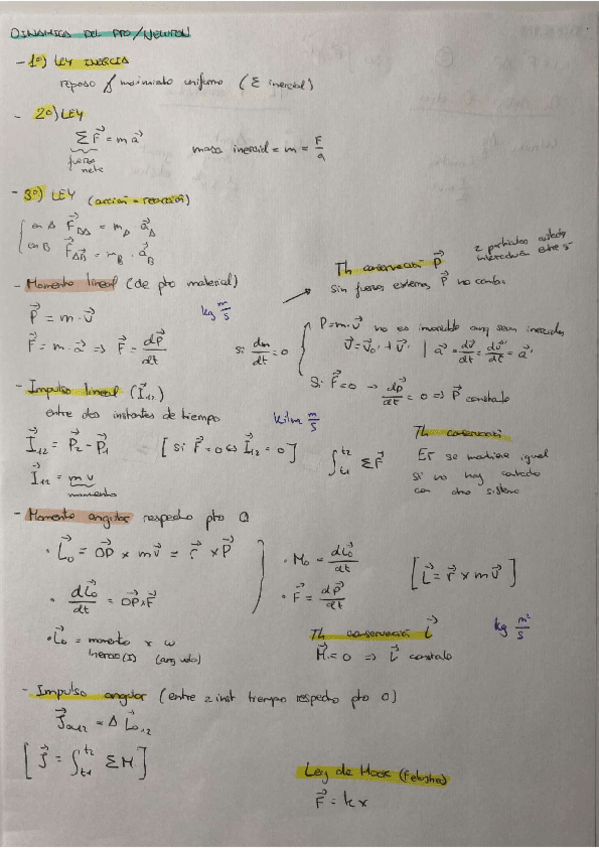 DINAMICA DEL PTO/NEWTON
- 1º) LEY INERCIA
reposo y movimiento uniforme (Σ inercial)
- 2º) LEY
ΣF⃗ = m a⃗
fuerza neta
masa inercial = m = F/a
- 3º) LEY (acción - reacción)
en A F⃗_BA = m_A · a⃗_A
en B F⃗_AB = m_B · a⃗_B
- Momento lineal (de pto material)
P⃗ = m · v⃗
kg m/s
F⃗ = m · a⃗ => F⃗ = dp⃗/dt
si dm/dt = 0
Th conservación P⃗
2 partículas
entre sí
Sin fuerzas externas P⃗ no cambia
P = m · v⃗ no es invariable aunq sean inerciales
v⃗ = v⃗₀' + v⃗' | a⃗ = dv⃗/dt = dv⃗'/dt = a⃗'
Si F⃗ = 0 → dp⃗/dt = 0 => P⃗ constante
- Impulso lineal (I⃗₁₂)
entre dos instantes de tiempo
m/s
I⃗₁₂ = P⃗₂ - P⃗₁ [si F⃗ = 0 <=> I⃗₁₂ = 0]
∫_t1^t2 ΣF⃗
I⃗₁₂ = m v
momento
Th conservación
se mantiene igual
si no hay
con otro sistema
- Momento angular respecto pto O
· L⃗₀ = OP⃗ x mv⃗ = r⃗ x P⃗
· dL⃗₀/dt = OP⃗ x F⃗
· L⃗₀ = momento inercia (I) x ω (ang velo)
· M₀ = dL⃗₀/dt
· F⃗ = dp⃗/dt
[L⃗ = r⃗ x mv⃗]
kg m²/s
Th conservación L⃗
M⃗ = 0 => L⃗ constante
- Impulso angular (entre 2 inst tiempo respecto pto O)
J⃗₀₁₂ = Δ L⃗₀₁₂
[J⃗ = ∫_t1^t2 ΣM]
Ley de Hook
F⃗ = kx